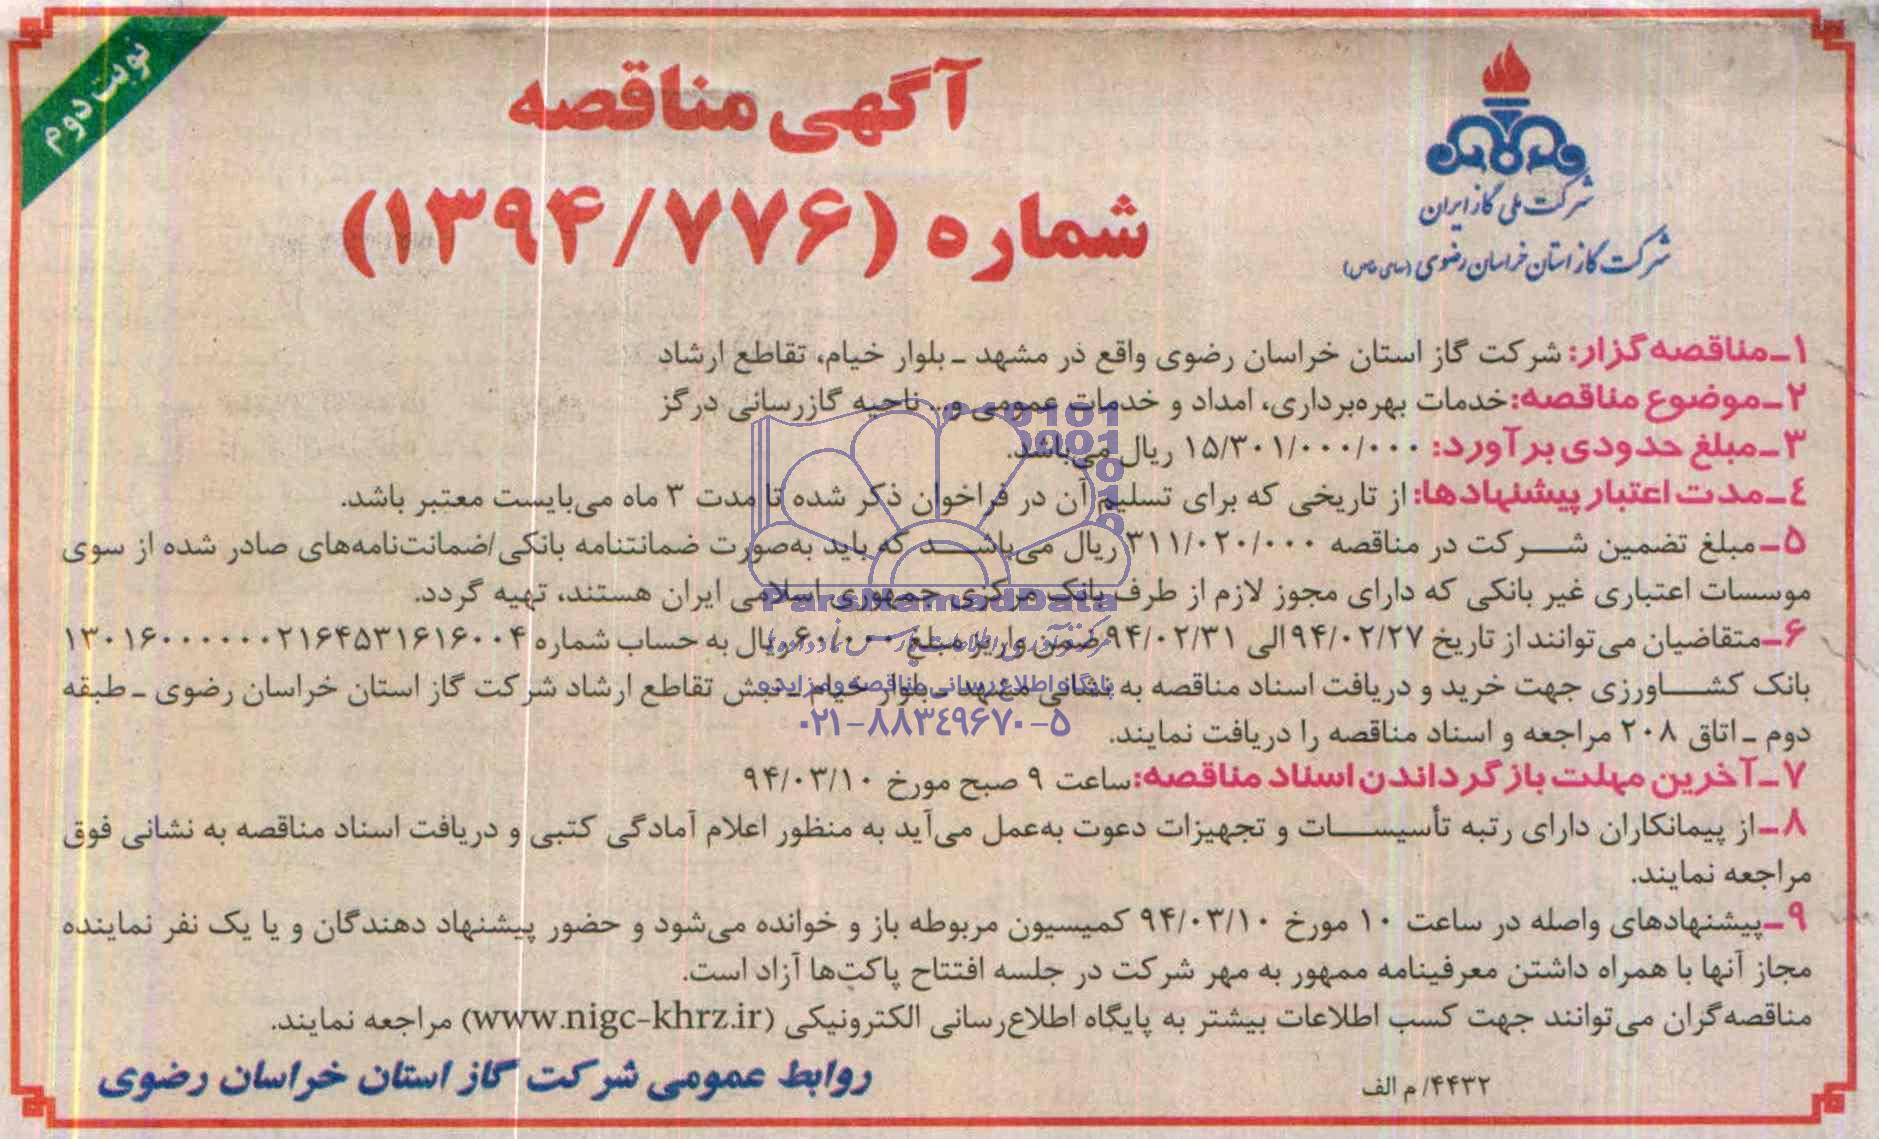 نوبت دوم
آگهی مناقصه
شماره (۱۳۹۴/۷۷۶)
شرکت ملی گاز ایران
شرکت گاز استان خراسان رضوی (سهامی خاص)
۱ـ مناقصه گزار: شرکت گاز استان خراسان رضوی واقع در مشهد ـ بلوار خیام، تقاطع ارشاد
۲ـ موضوع مناقصه: خدمات بهره‌برداری، امداد و خدمات عمومی و... ناحیه گازرسانی درگز
۳ـ مبلغ حدودی برآورد: ۱۵/۳۰۱/۰۰۰/۰۰۰ ریال می‌باشد.
٤ـ مدت اعتبار پیشنهادها: از تاریخی که برای تسلیم آن در فراخوان ذکر شده تا مدت ۳ ماه می‌بایست معتبر باشد.
۵ـ مبلغ تضمین شرکت در مناقصه ۳۱۱/۰۲۰/۰۰۰ ریال می‌باشد که باید به‌صورت ضمانتنامه بانکی/ضمانت‌نامه‌های صادر شده از سوی
موسسات اعتباری غیر بانکی که دارای مجوز لازم از طرف بانک مرکزی جمهوری اسلامی ایران هستند، تهیه گردد.
۶ـ متقاضیان می‌توانند از تاریخ ۹۴/۰۲/۲۷ الی ۹۴/۰۲/۳۱ ضمن واریز مبلغ ریال به حساب شماره ۱۳۰۱۶۰۰۰۰۰۰۰۲۱۶۴۵۳۱۶۱۶۰۰۴
بانک کشاورزی جهت خرید و دریافت اسناد مناقصه به نشانی مشهد ـ بلوار خیام ـ نبش تقاطع ارشاد شرکت گاز استان خراسان رضوی ـ طبقه
دوم ـ اتاق ۲۰۸ مراجعه و اسناد مناقصه را دریافت نمایند.
۷ـ آخرین مهلت بازگرداندن اسناد مناقصه: ساعت ۹ صبح مورخ ۹۴/۰۳/۱۰
۸ـ از پیمانکاران دارای رتبه تأسیسات و تجهیزات دعوت به‌عمل می‌آید به منظور اعلام آمادگی کتبی و دریافت اسناد مناقصه به نشانی فوق
مراجعه نمایند.
۹ـ پیشنهادهای واصله در ساعت ۱۰ مورخ ۹۴/۰۳/۱۰ کمیسیون مربوطه باز و خوانده می‌شود و حضور پیشنهاد دهندگان و یا یک نفر نماینده
مجاز آنها با همراه داشتن معرفینامه ممهور به مهر شرکت در جلسه افتتاح پاکت‌ها آزاد است.
مناقصه‌گران می‌توانند جهت کسب اطلاعات بیشتر به پایگاه اطلاع‌رسانی الکترونیکی (www.nigc-khrz.ir) مراجعه نمایند.
۴۴۳۲/ م الف
روابط عمومی شرکت گاز استان خراسان رضوی
ParsNamadData
پایگاه اطلاع رسانی مناقصه و مزایده
۰۲۱-۸۸۳٤۹۶۷۰-۵